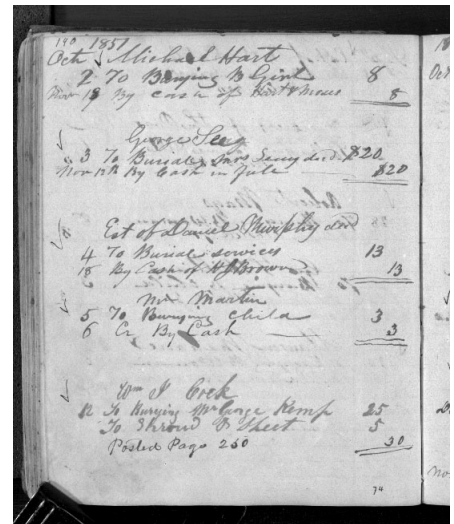 190 1851
Oct Michael Hart
2 To Burying B Girl 8
Nov 18 By Cash of Hart & Moses 8
George
3 To Burial dec'd $20
Nov 12th By Cash in full $20
Est of Daniel Murphy dec
4 To Burial services 13
18 By Cash of H Brown 13
Mr Martin
5 To Burying Child 3
6 Cr By Cash 3
Wm J Cock
12 To Burying Mr George Kemp 25
To Shroud & Sheet 5
Posted Page 250 30
74